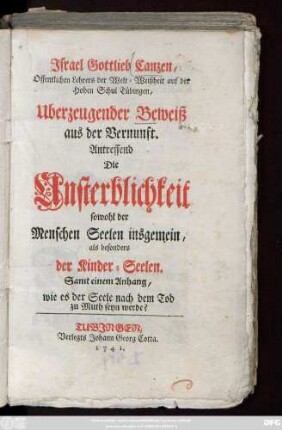 Israel Gottlieb Canzen,
Offentlichen Lehrers der Welt-Weißheit auf der
Hohen Schul Tübingen,
Uberzeugender Beweiß
aus der Vernunft.
Antreffend
Die
Unsterblichkeit
sowohl der
Menschen Seelen insgemein,
als besonders
der Kinder-Seelen.
Samt einem Anhang,
wie es der Seele nach dem Tod
zu Muth seyn werde?
TUBINGEN,
Verlegts Johann Georg Cotta.
1741.